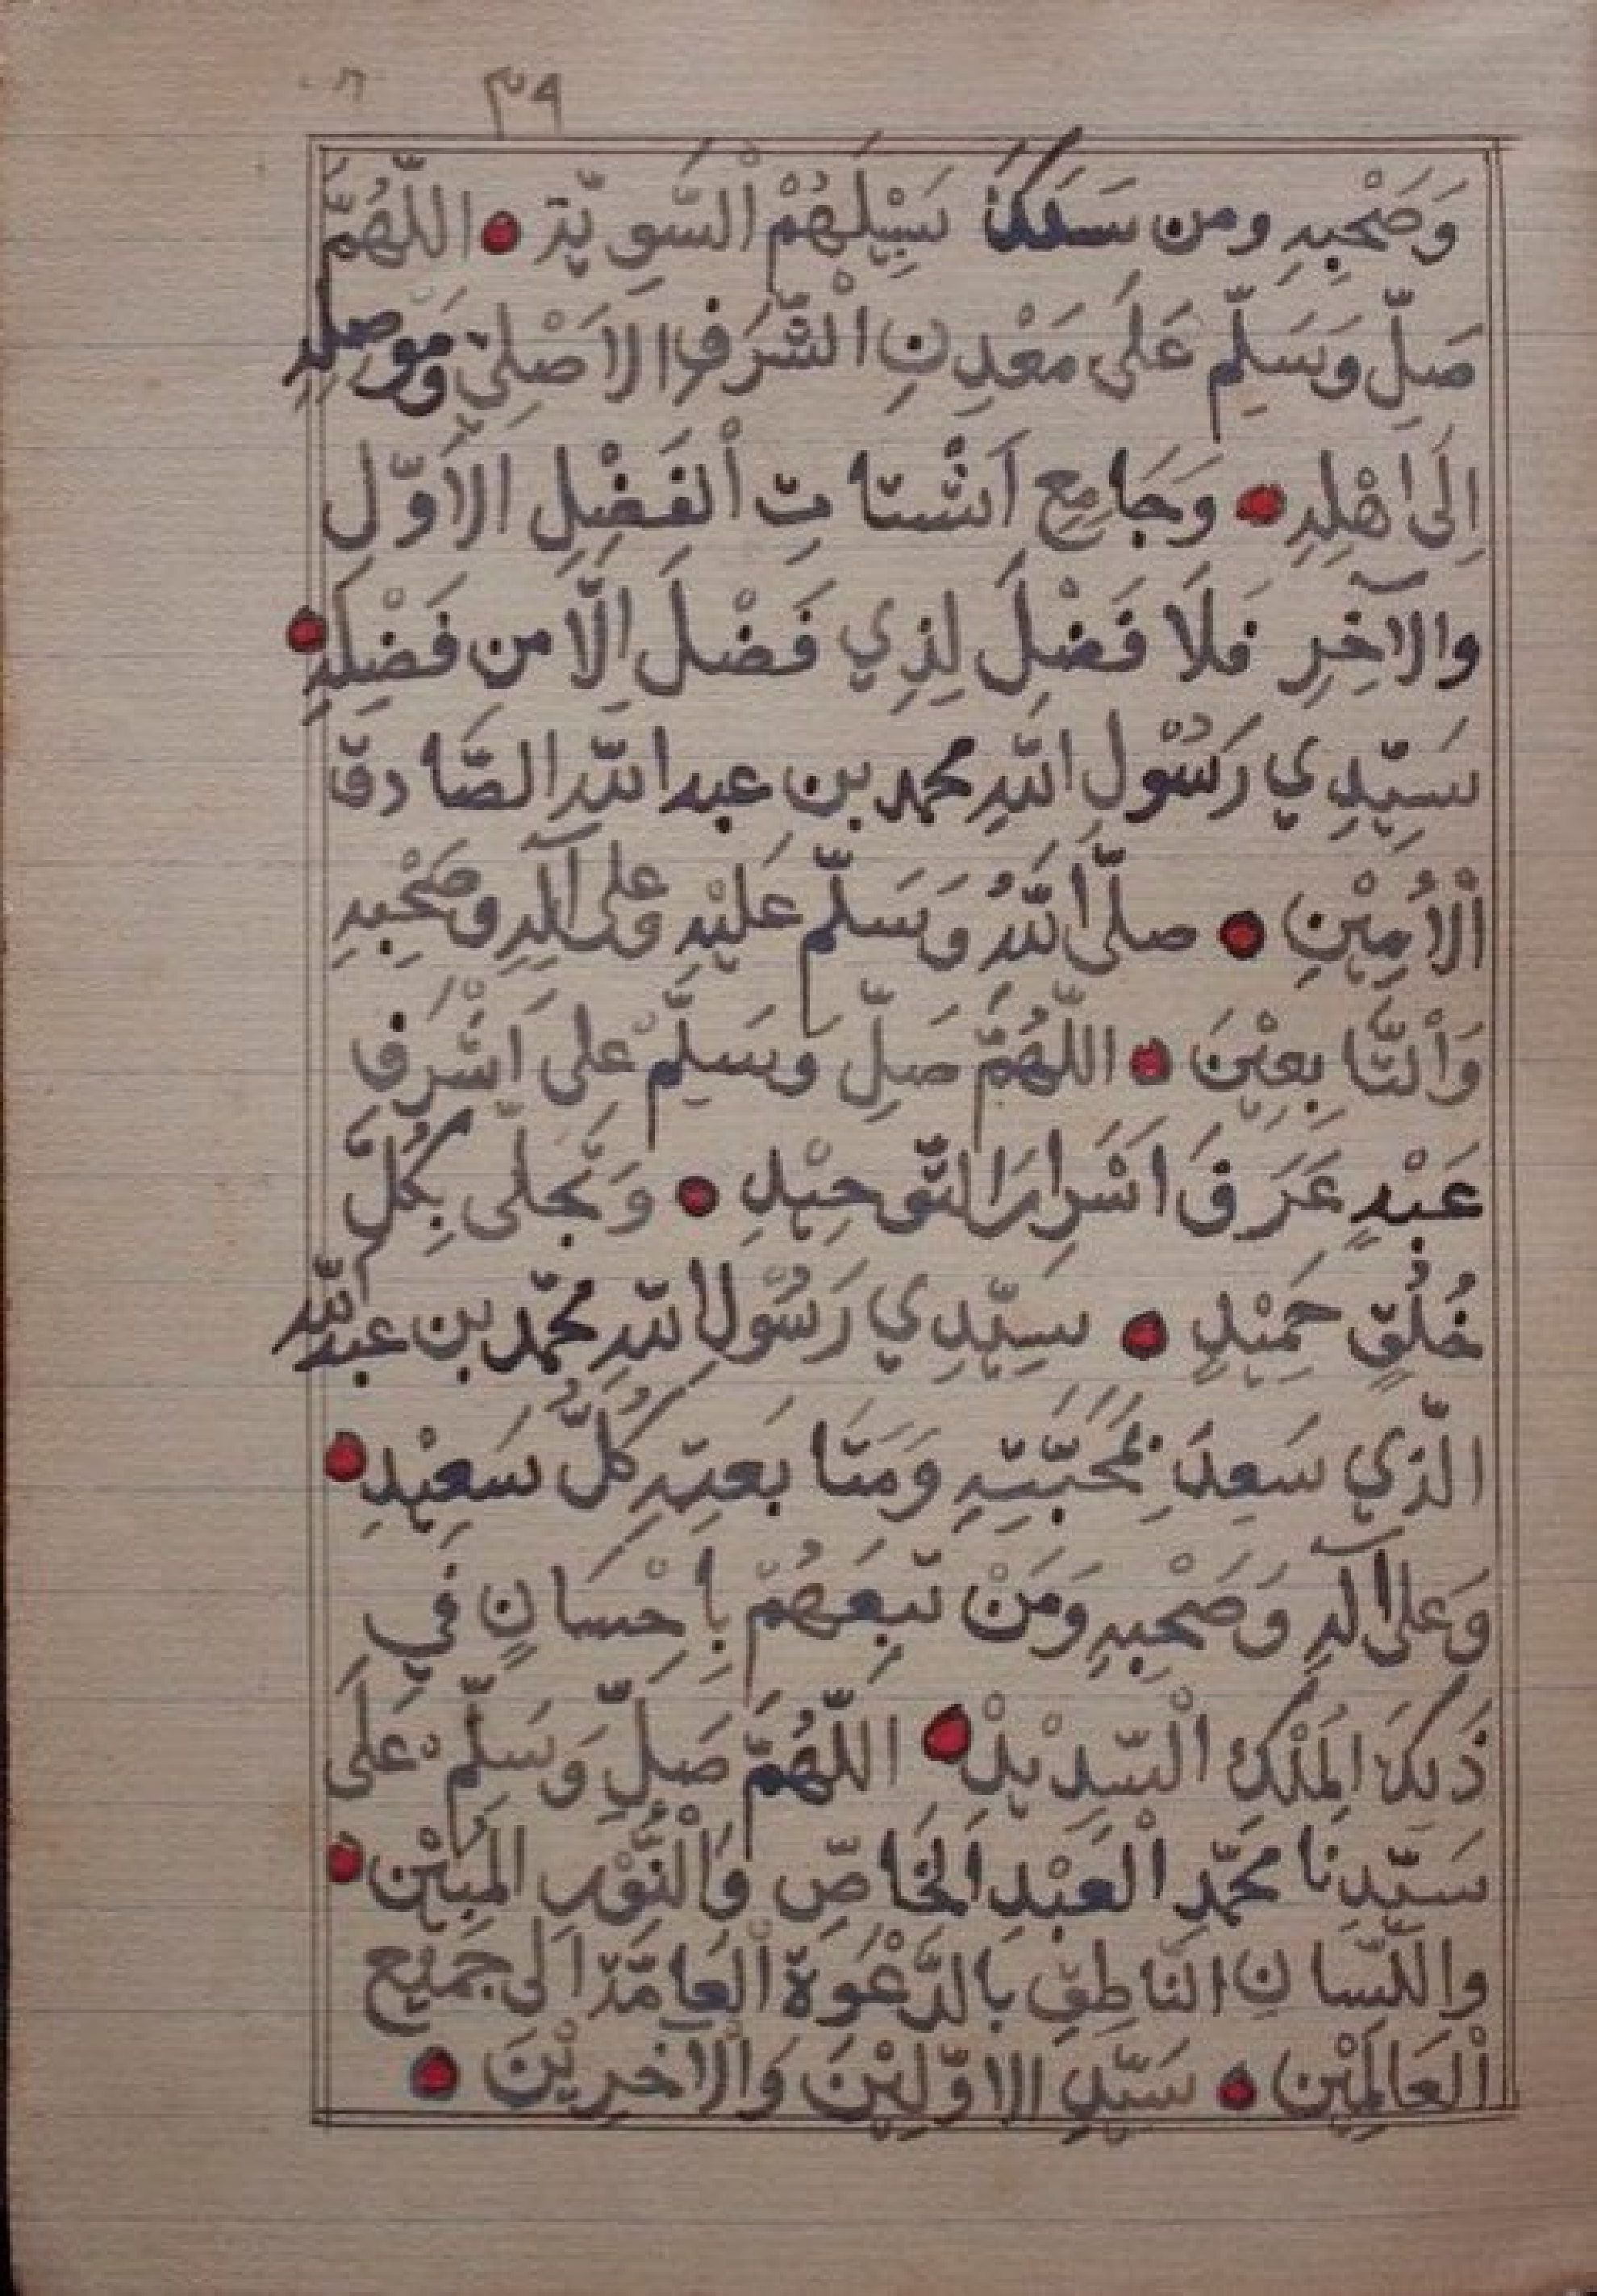 ٣٩
وَصَحْبِهِ ومن سَلَكَ سَبِيْلَهُمْ الْسَّوِيَّة • اللّٰهُمَّ
صَلِّ وَسَلِّم عَلَى مَعْدِنِ الْشَّرَفِ الاَصْلِيّ وَموصِلِهِ
اِلَى اَهْلِهِ • وَجَامِعِ اَشْتَاتِ الْفَضْلِ الاَوَّل
والآخِرِ فَلاَ فَضْلَ لِذِي فَضْلَ اِلّا من فَضْلِهِ •
سَيِّدِي رَسُوْل اللّهِ محمد بن عبد اللّه الصَّادق
الْاَمِيْنِ • صلّى اللّهُ وَسَلّم عَلَيْهِ وَعلى آلِهِ وصَحْبِهِ
وَالْتَّابِعِيْنَ • اللّٰهُمَّ صَلِّ وَسَلِّمْ على اَشْرَف
عَبْدٍ عَرَفَ اَسْرارَ التَّوحِيْدِ • وَتَجَلّى بِكُلِّ
خُلُقٍ حَمِيْدٍ • سيّدِي رَسُوْلِ اللّهِ محمّد بن عبد اللّه
الّذِي سَعِدَ بِمَحَبَّتِهِ وَمتَابَعتِهِ كُلُّ سَعِيْدِ •
وَعلى آلهِ وَصَحْبِهِ وَمَنْ تَبِعَهُمْ بِاِحْسَانٍ فِي
ذَلِكَ الْمَلْكِ الْسّدِيْدْ • اللّٰهُمَّ صَلِّ وَسَلِّمْ عَلَى
سَيّدِنَا محَمّدِ الْعَبْدِ الخَاصِّ وَالْنُّوْرِ المُبِيْن •
واللّسَانِ النَاطِقِ بَالدَّعْوَة الْعَامَّة اِلى جَمِيْع
الْعَالَمِيْن • سَيّدِ الاوّلِيْنَ وَالْآخِرِيْنَ •